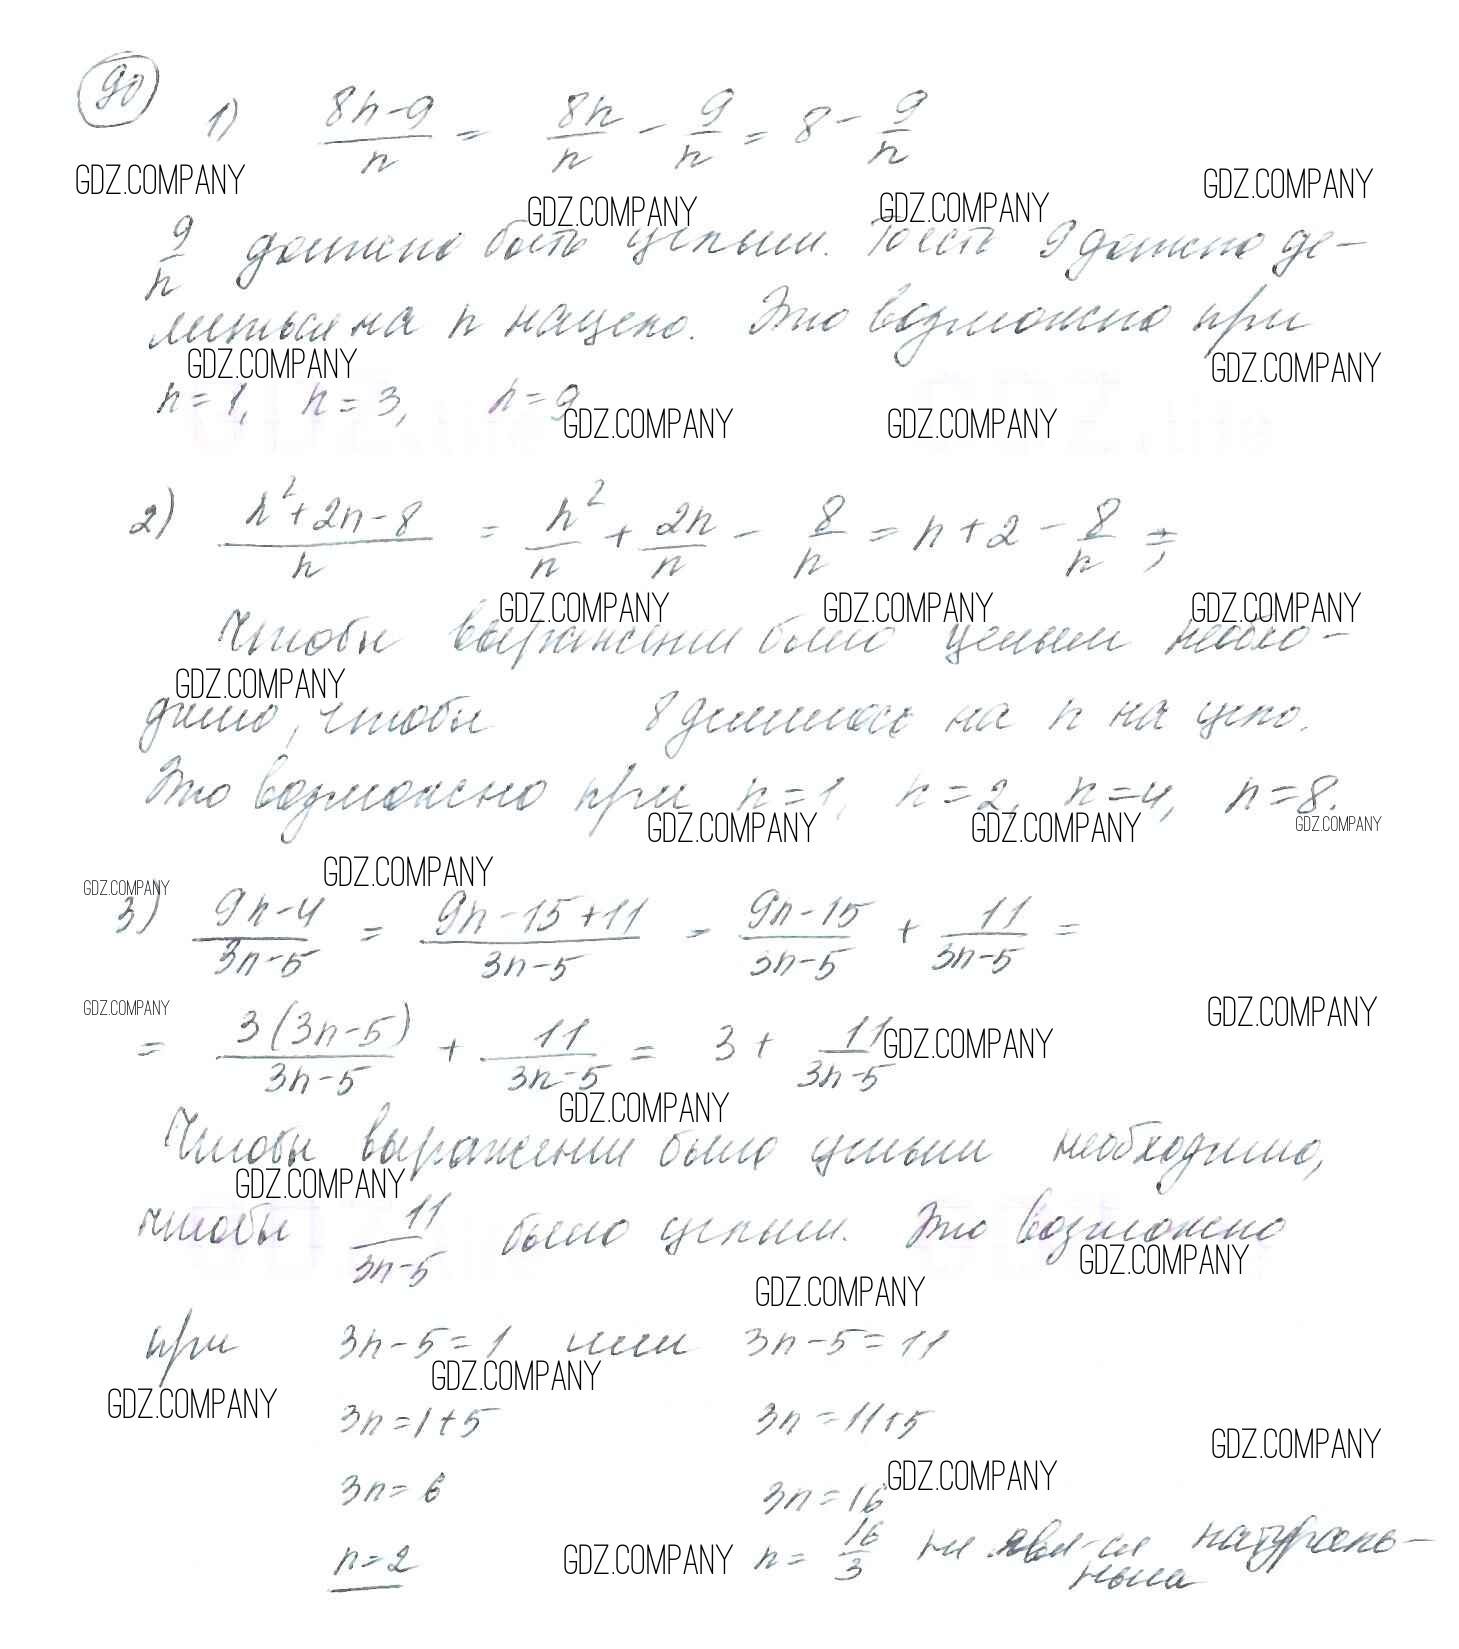 90
1) (8n-9)/n = 8n/n - 9/n = 8 - 9/n
GDZ.COMPANY GDZ.COMPANY GDZ.COMPANY GDZ.COMPANY
9/n должно быть целым. То есть 9 должно де-
литься на n нацело. Это возможно при
GDZ.COMPANY GDZ.COMPANY
n=1, n=3, n=9
GDZ.COMPANY GDZ.COMPANY
2) (n²+2n-8)/n = n²/n + 2n/n - 8/n = n+2 - 8/n ;
GDZ.COMPANY GDZ.COMPANY GDZ.COMPANY
Чтобы выражении было целым необхо-
GDZ.COMPANY
димо, чтобы 8 делилось на n на цело.
Это возможно при n=1, n=2, n=4, n=8.
GDZ.COMPANY GDZ.COMPANY GDZ.COMPANY
GDZ.COMPANY GDZ.COMPANY
3) (9n-4)/(3n-5) = (9n-15+11)/(3n-5) = (9n-15)/(3n-5) + 11/(3n-5) =
GDZ.COMPANY GDZ.COMPANY
= 3(3n-5)/(3n-5) + 11/(3n-5) = 3 + 11/(3n-5)
GDZ.COMPANY
GDZ.COMPANY
Чтобы выражении было целым необходимо,
GDZ.COMPANY
чтобы 11/(3n-5) было целым. Это возможно
GDZ.COMPANY
GDZ.COMPANY
при 3n-5=1 или 3n-5=11
GDZ.COMPANY
GDZ.COMPANY
3n=1+5 3n=11+5
GDZ.COMPANY
3n=6 3n=16
GDZ.COMPANY
n=2 n=16/3 не явл-ся натураль-
GDZ.COMPANY
ным